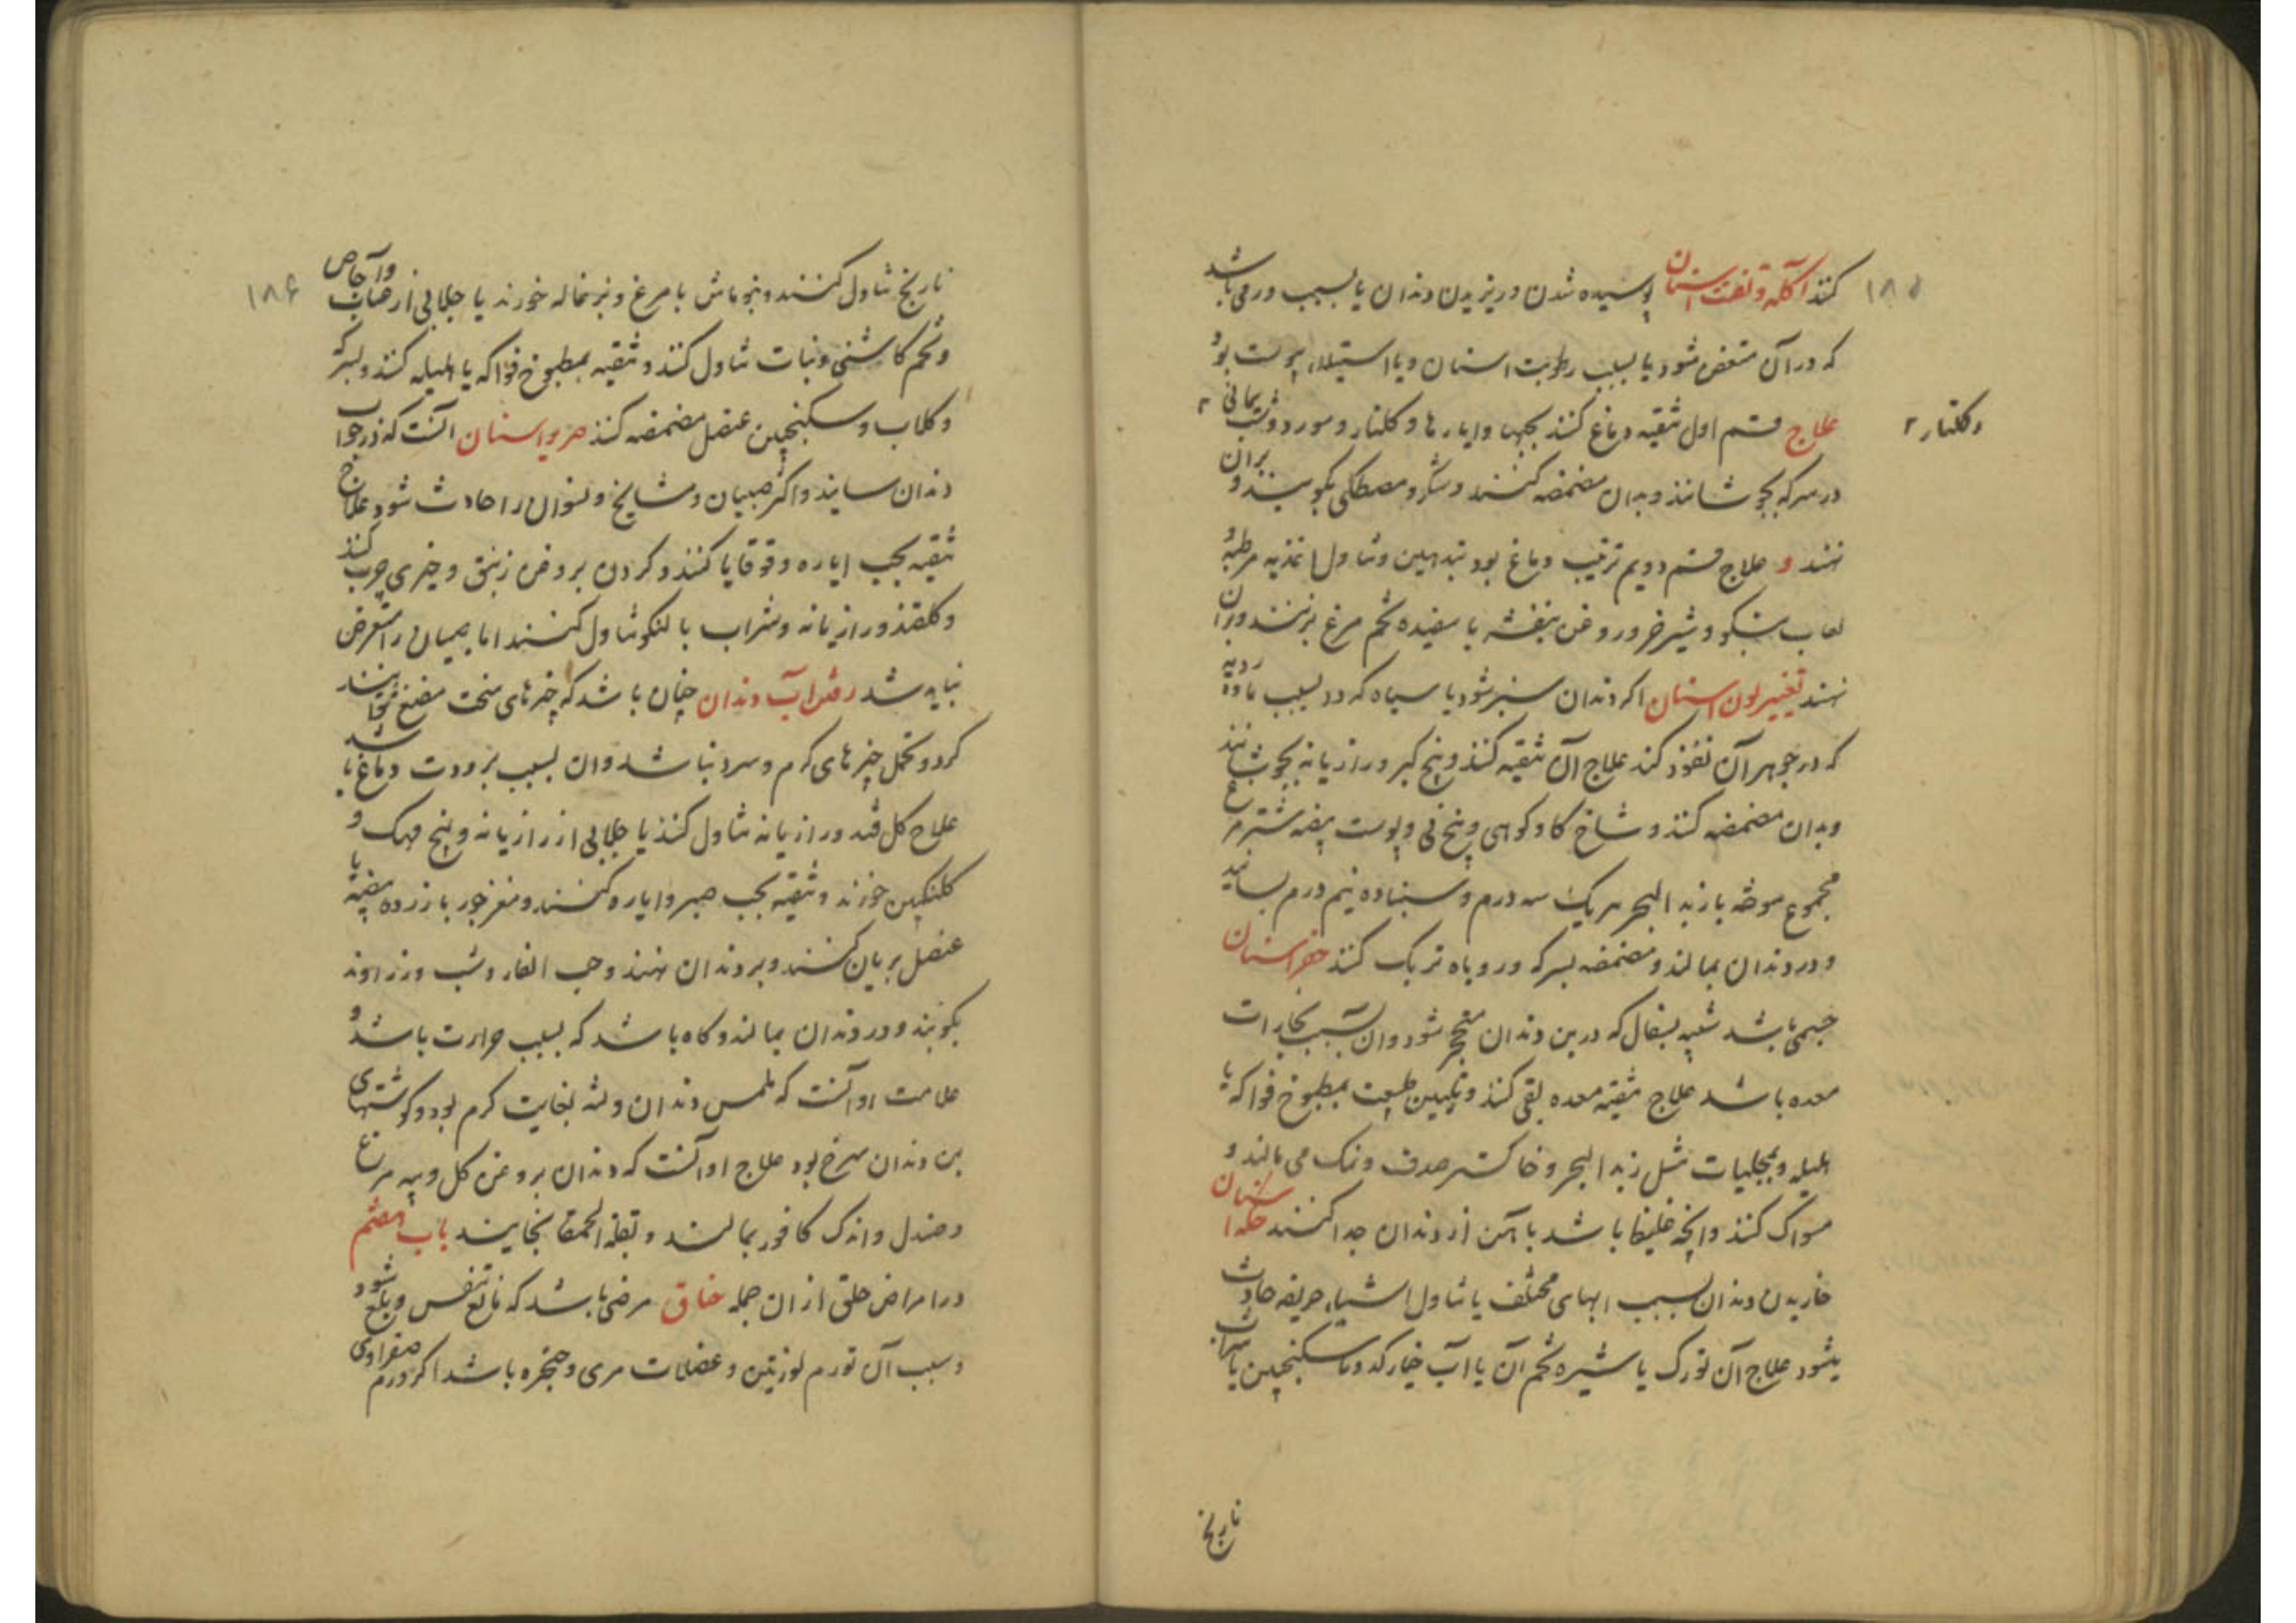 ۱۸۵
کنند اکله و تفتت اسنان پوسیده شدن و ریزیدن دندان یا بسبب ورمی باشد
که در آن متعفن شود یا بسبب رطوبت اسنان و یا استیلاء یبوست بود
علاج قسم اول تنقیه دماغ کنند بحبها و ایارها و کلنار و مورد و شب یمانی
وکلنار
در سرکه بجوشانند و بدان مضمضه کنند و سک و مصطکی بکوبند و بران
نهند و علاج قسم دویم ترطیب دماغ بود بتدهین و تناول اغذیه مرطبه و
لعاب و شیر خر و روغن بنفشه با سفیده تخم مرغ بزنند و بران
نهند تغییر لون اسنان اکر دندان سبز شود یا سیاه که در بسبب ماده ردیه
که در جوهر آن نفوذ کند علاج آن تنقیه کنند و بیخ کبر و رازیانه بجوشانند
وبدان مضمضه کنند و شاخ کاو کوهی و بیخ نی و پوست بیضه شترمرغ
مجموع سوخته با زبد البحر هریک سه درم و سنباده نیم درم بسایند
و در دندان بمالند و مضمضه بسرکه و روباه تربک کنند حفر اسنان
جسمی باشد شبیه بسفال که در بن دندان متحجر شود وان بسبب بخارات
معده باشد علاج تنقیه معده بقی کنند و تلیین طبیعت بمطبوخ فواکه یا
هلیله و بمجلیات مثل زبد البحر و خاکستر صدف و نمک می مالند و
مسواک کنند و انچه غلیظ باشد بآهن از دندان جدا کنند حکه اسنان
خاریدن دندان بسبب ابهای مختلف یا تناول اشیاء حریفه حادث
میشود علاج آن تورک یا شیره تخم آن یا آب خیار کدو با سکنجبین یا شراب
نارنج
۱۸۶
نارنج تناول کنند و نخود ماش با مرغ و بزغاله خورند یا جلابی از عناب و آجاص
و تخم کاشنی و نبات تناول کنند و تنقیه بمطبوخ فواکه یا هلیله کنند و بسرکه
و کلاب و سکنجبین عنصل مضمضه کنند صریر اسنان آنست که در خواب
دندان سایند و اکثر صبیان و مشایخ و نسوان را حادث شود علاج
تنقیه بحب ایاره و قوقایا کنند و کردن بروغن زنبق و خیری چرب کنند
و کلقند و رازیانه و شراب بالنکو تناول کنند اما صبیان را متعرض
نباید شد رفتن آب دندان چنان باشد که چیزهای سخت مضغ نتوانند
کرد و تحمل چیزهای کرم و سرد نباشد وان بسبب برودت دماغ باشد
علاج کل قند و رازیانه تناول کنند یا جلابی از رازیانه و بیخ مهک و
کلنکبین خورند و تنقیه بحب صبر و ایاره کنند و مغز جوز با زرده بیضه با
عنصل بریان کنند و بر دندان نهند و حب الغار و شب و زراوند
بکوبند و در دندان بمالند و کاه باشد که بسبب حرارت باشد و
علامت او آنست که ملمس دندان و لثه بغایت کرم بود و کوشتهای
بن دندان سرخ بود علاج او آنست که دندان بروغن کل و پیه مرغ
و صندل و اندک کافور بمالند و بقلة الحمقا بخایند باب هفتم
در امراض حلق از ان جمله خناق مرضی باشد که مانع تنفس و بلع شود
و سبب آن تورم لوزتین و عضلات مری و حنجره باشد اکر ورم صفراوی